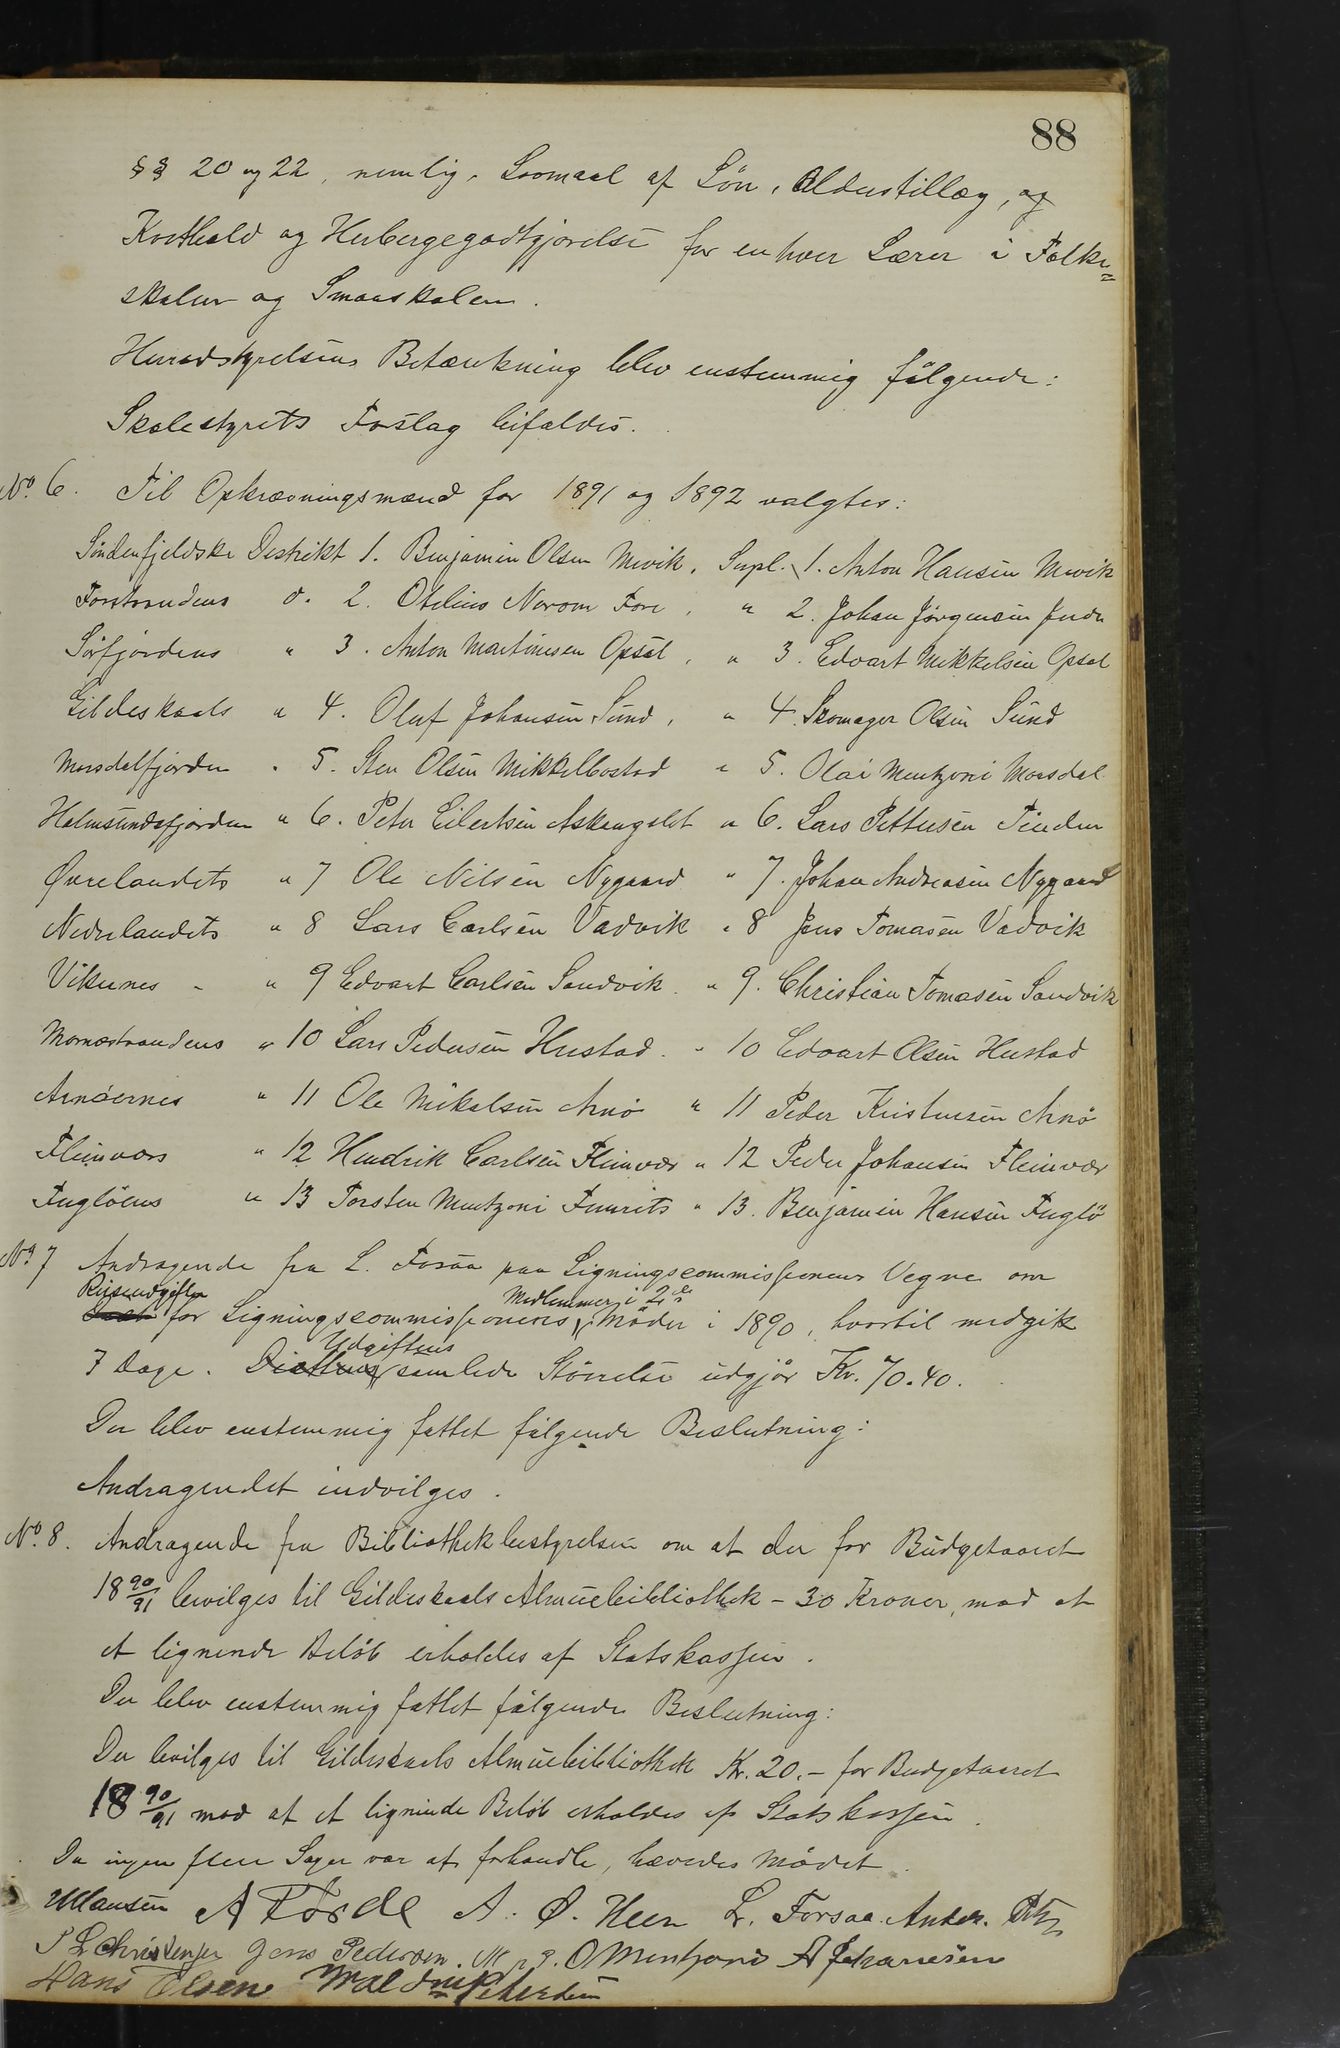 88
§§ 20 og 22, nemlig, Loomaal af Løn, Alderstillæg, og
Kosthold og Herbergegodtgjørelse for enhver Lærer i Folke=
skolen og Smaaskolen.
Herredstyrelsens Betænkning blev enstemmig følgende:
Skolestyrets Forslag bifaldes.
No. 6. Til Opkrævningsmænd for 1891 og 1892 valgtes:
Søndenfjeldske Destrikt 1. Benjamin Olsen Mevik, Supl. 1. Anton Hansen Mevik
Forstrandens d. 2. Otelius Norom Fore, " 2. Johan Jørgensen Inder
Sørfjordens " 3. Anton Martinesen Opsal, " 3. Edvart Mikkelsen Opsal
Gildeskaals " 4. Oluf Johansen Sund, " 4. Skomager Olsen Sund
Morsdalfjorden " 5. Sten Olsen Mikkelbostad " 5. Olai Mentzoni Morsdal
Holmsundsfjorden " 6. Peter Eilertsen Askangslet " 6. Lars Pettersen Finden
Øvrelandets " 7 Ole Nilsen Nygaard " 7. Johan Andreasen Nygaard
Nedrelandets " 8 Lars Carlsen Vadvik " 8 Jens Tomasen Vadvik
Viknnes - " 9 Edvart Carlsen Sandvik " 9. Christian Tomasen Sandvik
Mornæstrandens " 10 Lars Pedersen Hustad. " 10 Edvart Olsen Hustad
Arnøernes " 11 Ole Mikalsen Arnø " 11 Peder Kristensen Arnø
Fleinværs " 12 Hendrik Carlsen Fleinvær " 12 Peder Johansen Fleinvær
Fugløens " 13 Torsten Mentzoni " 13. Benjamin Hansen Fuglø
No. 7 Andragende fra L. Forsaa paa Ligningscommissionens Vegne om
Reiseudgifter for Ligningscommissionens Medlemmer i 2de Møder i 1890, hvortil medgik
7 Dage. Diættens Udgiftens samlede Størrelse udgjør Kr. 70.40.
Der blev enstemmig fattet følgende Beslutning:
Andragendet indvilges.
No. 8. Andragende fra Bibliothekbestyrelsen om at der for Budgetaaret
18 90/91 bevilges til Gildeskaals Almuebibliothek - 30 Kroner, mod at
et lignende Beløb erholdes af Statskassen.
Der blev enstemmig fattet følgende Beslutning:
Der bevilges til Gildeskaals Almuebibliothek Kr. 20.- for Budgetaaret
18 90/91 mod at et lignende Beløb erholdes af Statskassen.
Da ingen flere Sager var at forhandle, hævedes Mødet.
Hansen A Førde A. Ø. Heen L. Forsaa. Anders.
P L Christensen Jens Pedersen. O Mentzoni A Johannesen
Hans Olsen Petersen